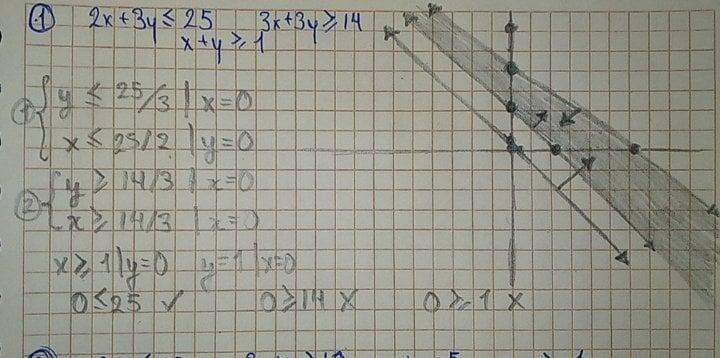 ① 2x+3y ≤ 25 3x+3y ≥ 14
x+y ≥ 1
① { y ≤ 25/3 | x=0
x ≤ 25/2 | y=0
② { y ≥ 14/3 | x=0
x ≥ 14/3 | x=0
x ≥ 1 | y=0 y=1 | x=0
0 ≤ 25 ✓ 0 ≥ 14 X 0 ≥ 1 X